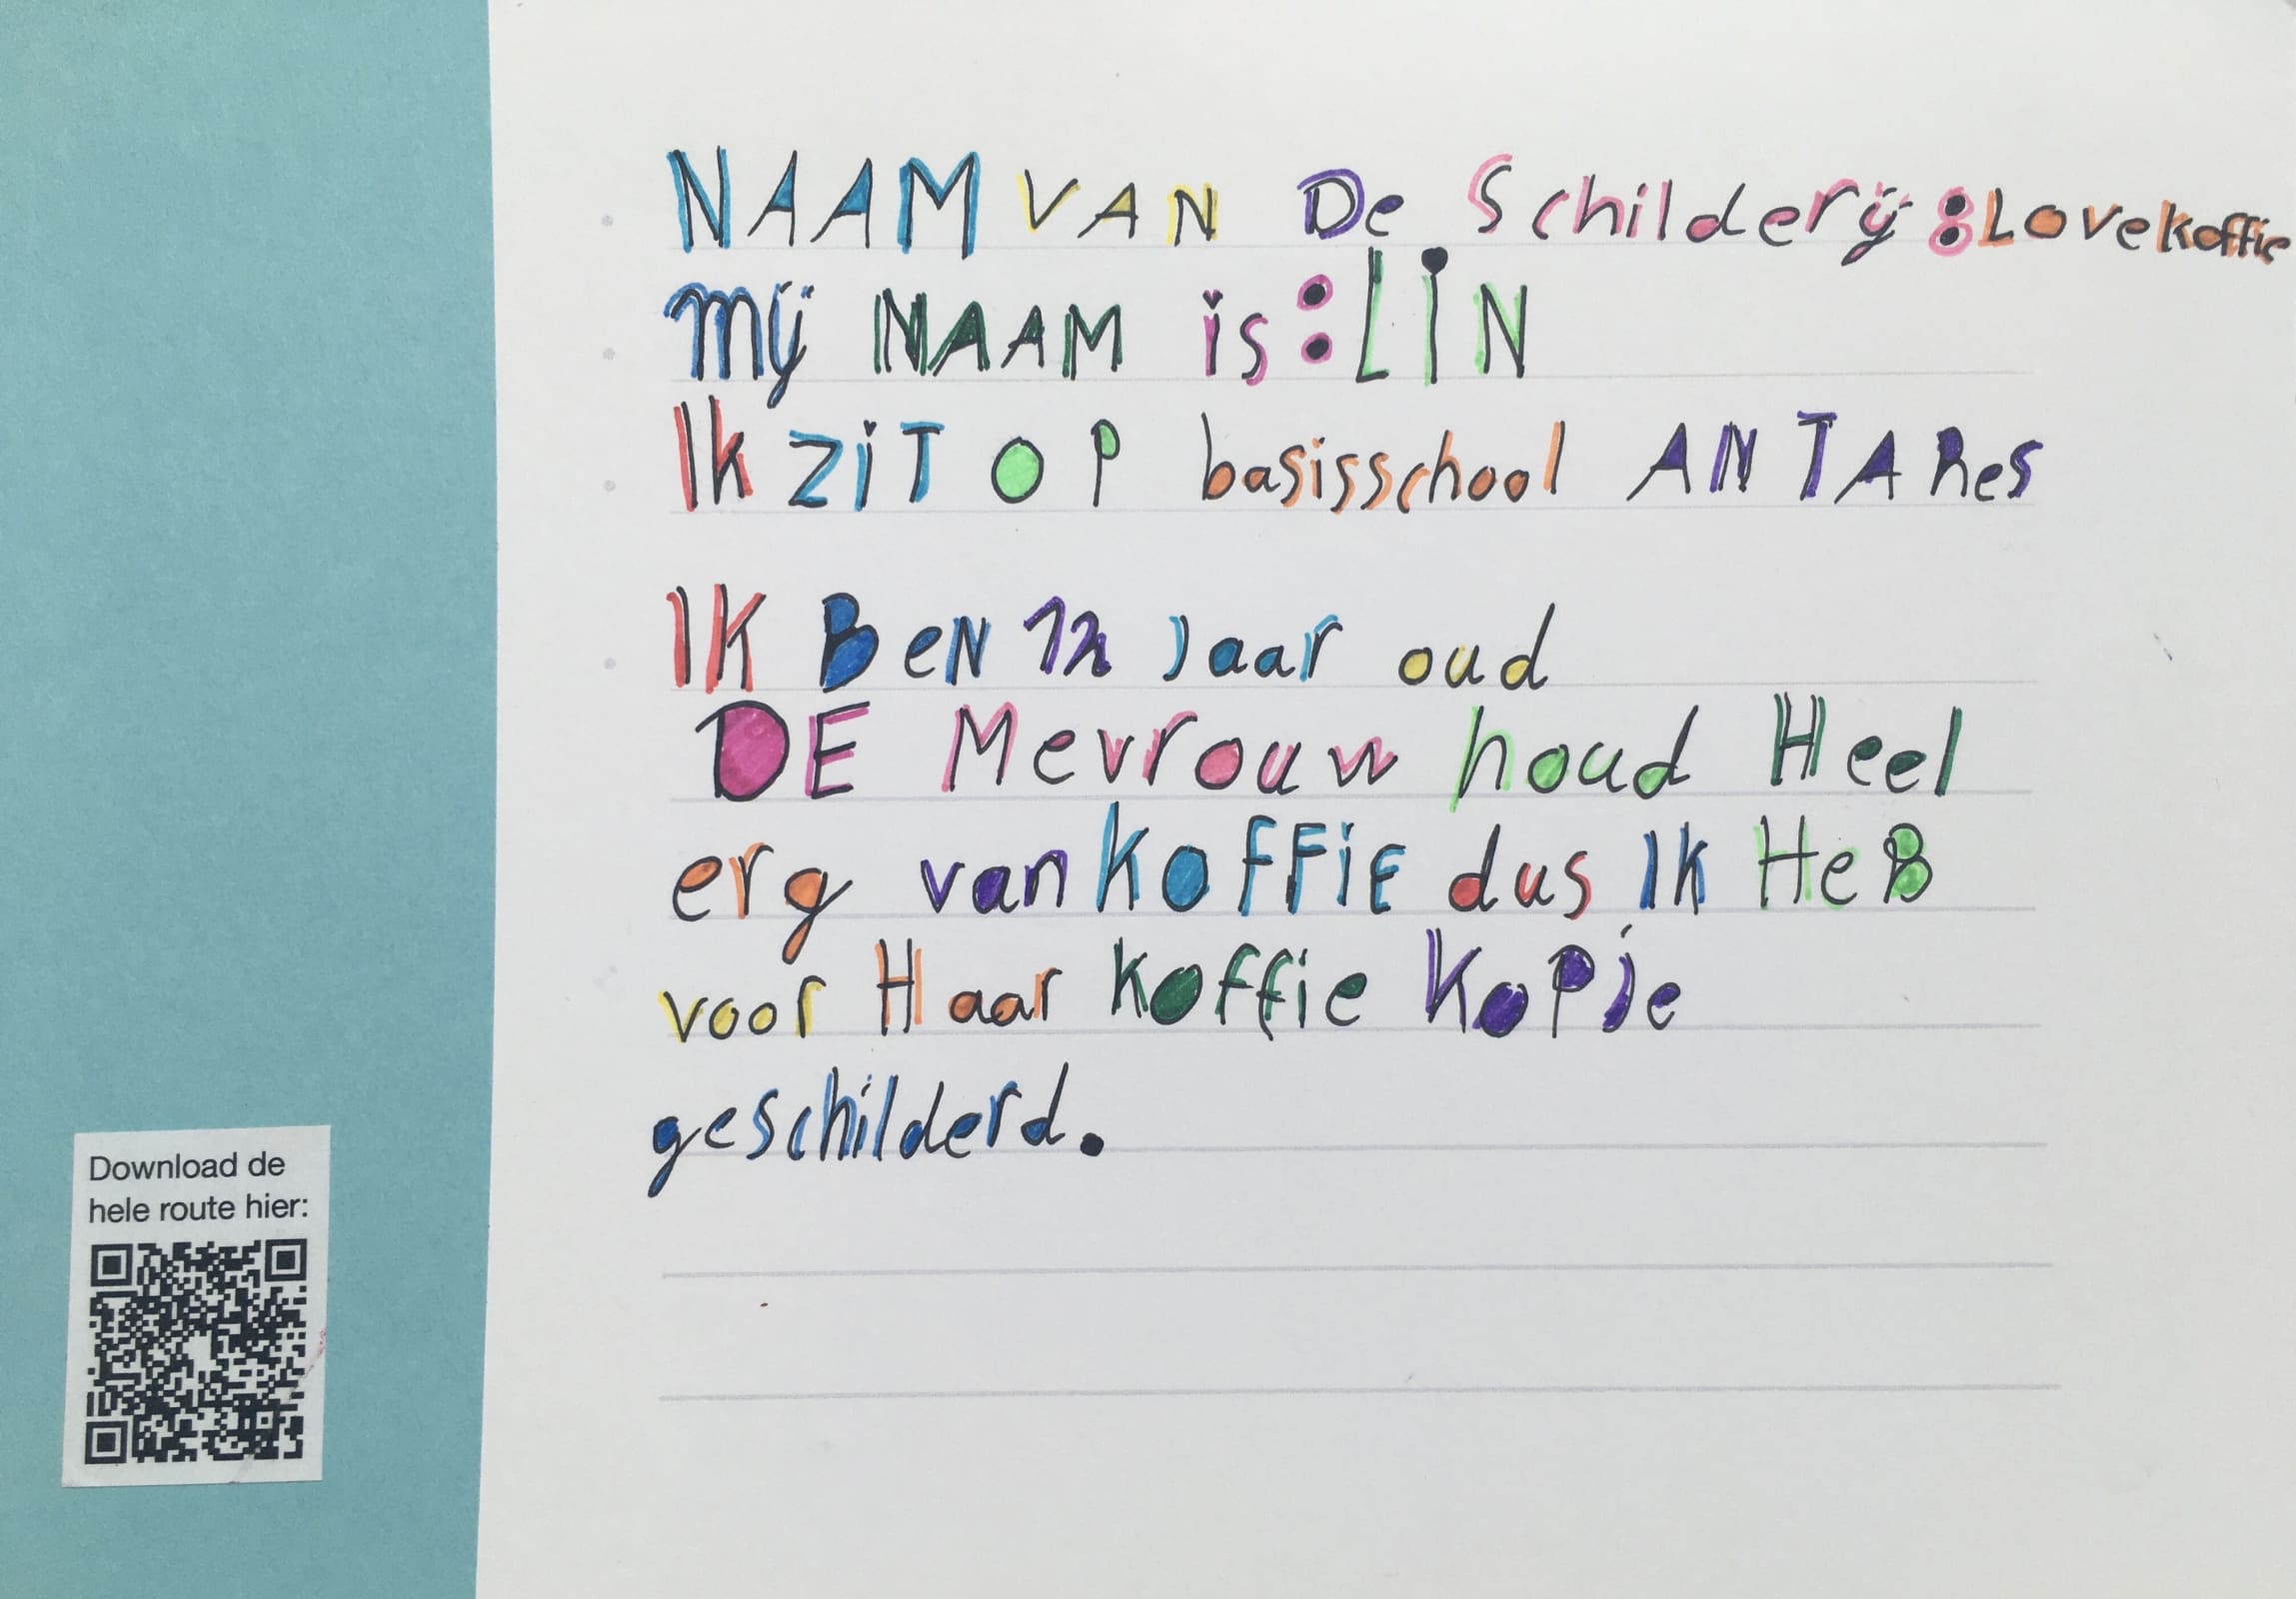 NAAM VAN De Schilderÿ: Lovekoffie
mÿ NAAM is: LiN
Ik ZiT OP basisschool ANTARes
IK BeN 12 Jaar oud
DE Mevrouw houd Heel
erg van KoFFiE dus IK HeB
voor Haar koffie KoPje
geschilderd.
Download de
hele route hier: